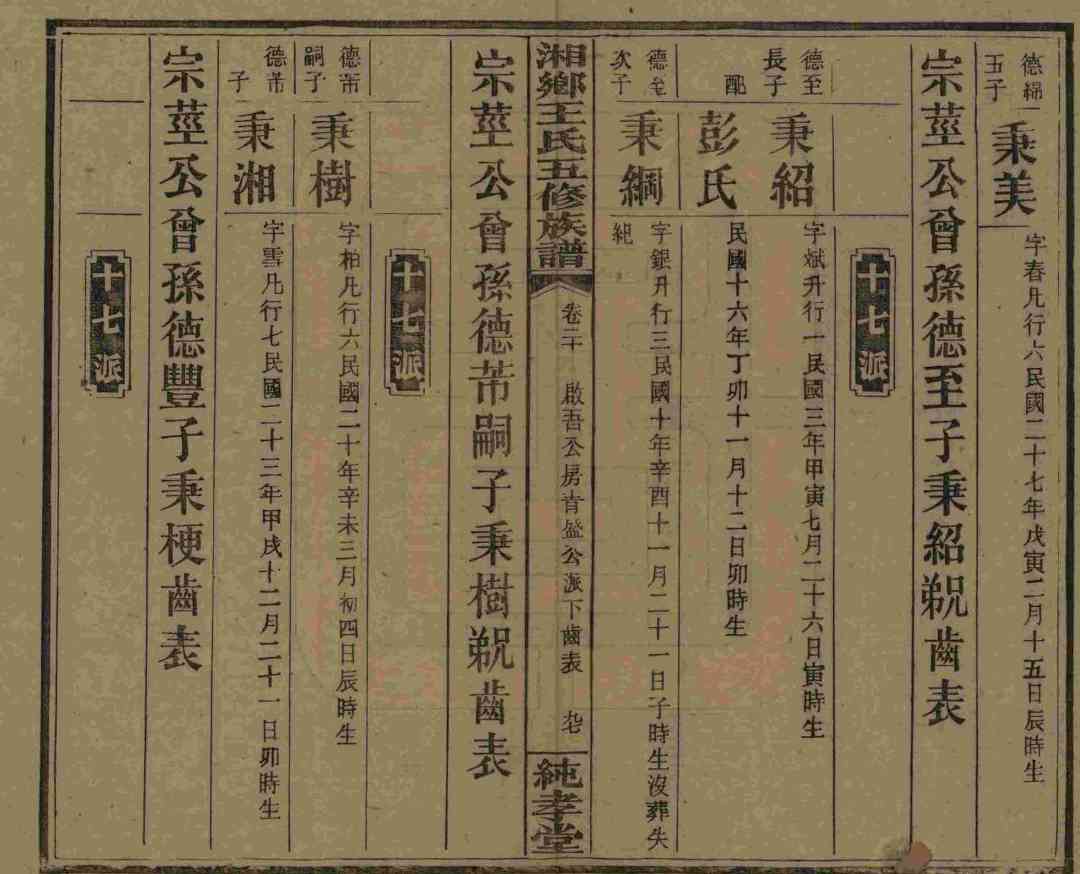 德綿五子
秉美
字春凡行六民國二十七年戊寅二月十五日辰時生
宗莖公曾孫德至子秉紹覜齒表
十七派
德至長子
秉紹
字斌升行一民國三年甲寅七月二十六日寅時生
配
彭氏
民國十六年丁卯十一月十二日卯時生
德至次子
秉綱
字銀升行三民國十年辛酉十一月二十一日子時生沒葬失
紀
湘鄉王氏五修族譜
卷二十
啟吾公房肯盛公派下齒表
純孝堂
宗莖公曾孫德芾嗣子秉樹覜齒表
十七派
德芾嗣子
秉樹
字柏凡行六民國二十年辛未三月初四日辰時生
德芾子
秉湘
字雪凡行七民國二十三年甲戌十二月二十一日卯時生
宗莖公曾孫德豐子秉梗齒表
十七派